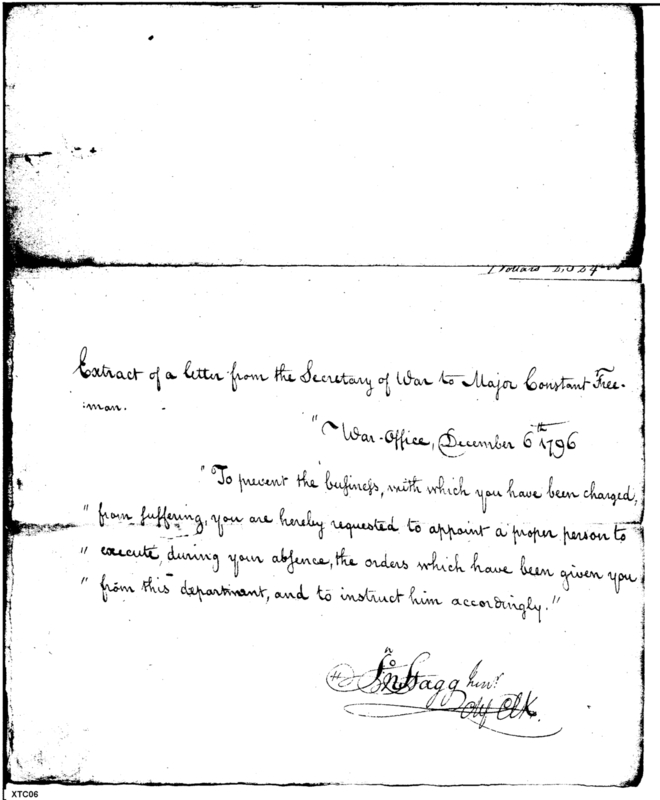 Dollars
Extract of a letter from the Secretary of War to Major Constant Free-
:man.
"War-Office, December 6th 1796
"To prevent the business, with which you have been charged,
" from suffering, you are hereby requested to appoint a proper person to
" execute, during your absence, the orders which have been given you
" from this department, and to instruct him accordingly."
Jno Stagg Junr
Chf Clk.
XTC06